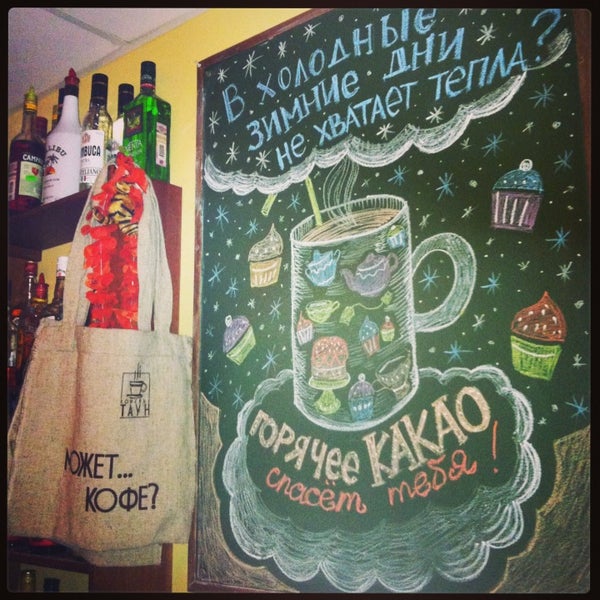 В ХОЛОДНЫЕ
ЗИМНИЕ ДНИ
НЕ ХВАТАЕТ ТЕПЛА?
ГОРЯЧЕЕ КАКАО
спасёт тебя!
МОЖЕТ...
КОФЕ?
ТАУН
CAMPARI
MALIBU